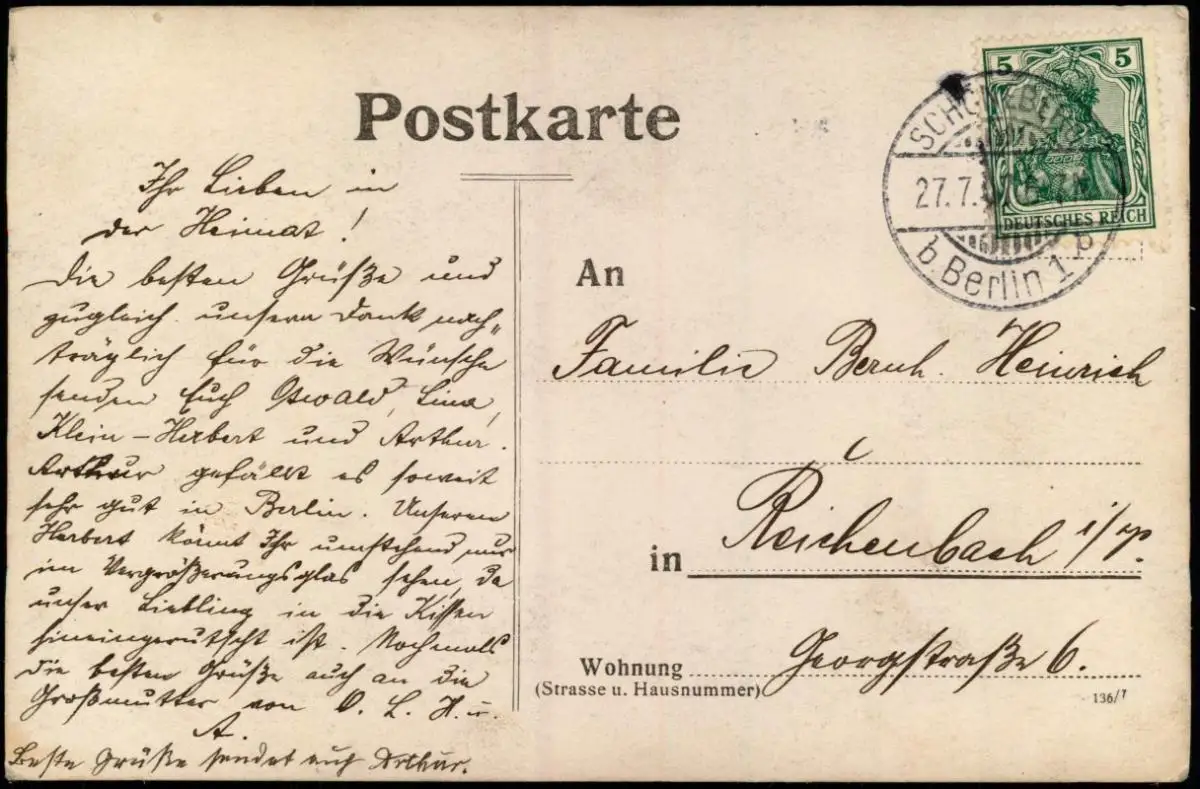 Postkarte
5 5
DEUTSCHES REICH
SCHÖNEBERG
27.7.
b. Berlin 1
b
Ihr Lieben in
der Heimat!
Die besten Grüße und
zugleich unsern Dank nach„
träglich für die Wünsche
senden Euch Oswald, Lina,
Klein-Herbert und Arthur.
Arthur gefällt es soweit
sehr gut in Berlin. Unseren
Herbert könnt Ihr umstehend nur
im Vergrößerungsglas sehen, da
unser Liebling in die Kissen
hineingerutscht ist. Nochmals
die besten Grüße auch an die
Großmutter von O. L. H. u.
A.
Beste Grüße sendet auch Arthur.
An
Familie Bernh. Heinrich
in Reichenbach i/V.
Wohnung Georgstraße 6.
(Strasse u. Hausnummer)
136/7